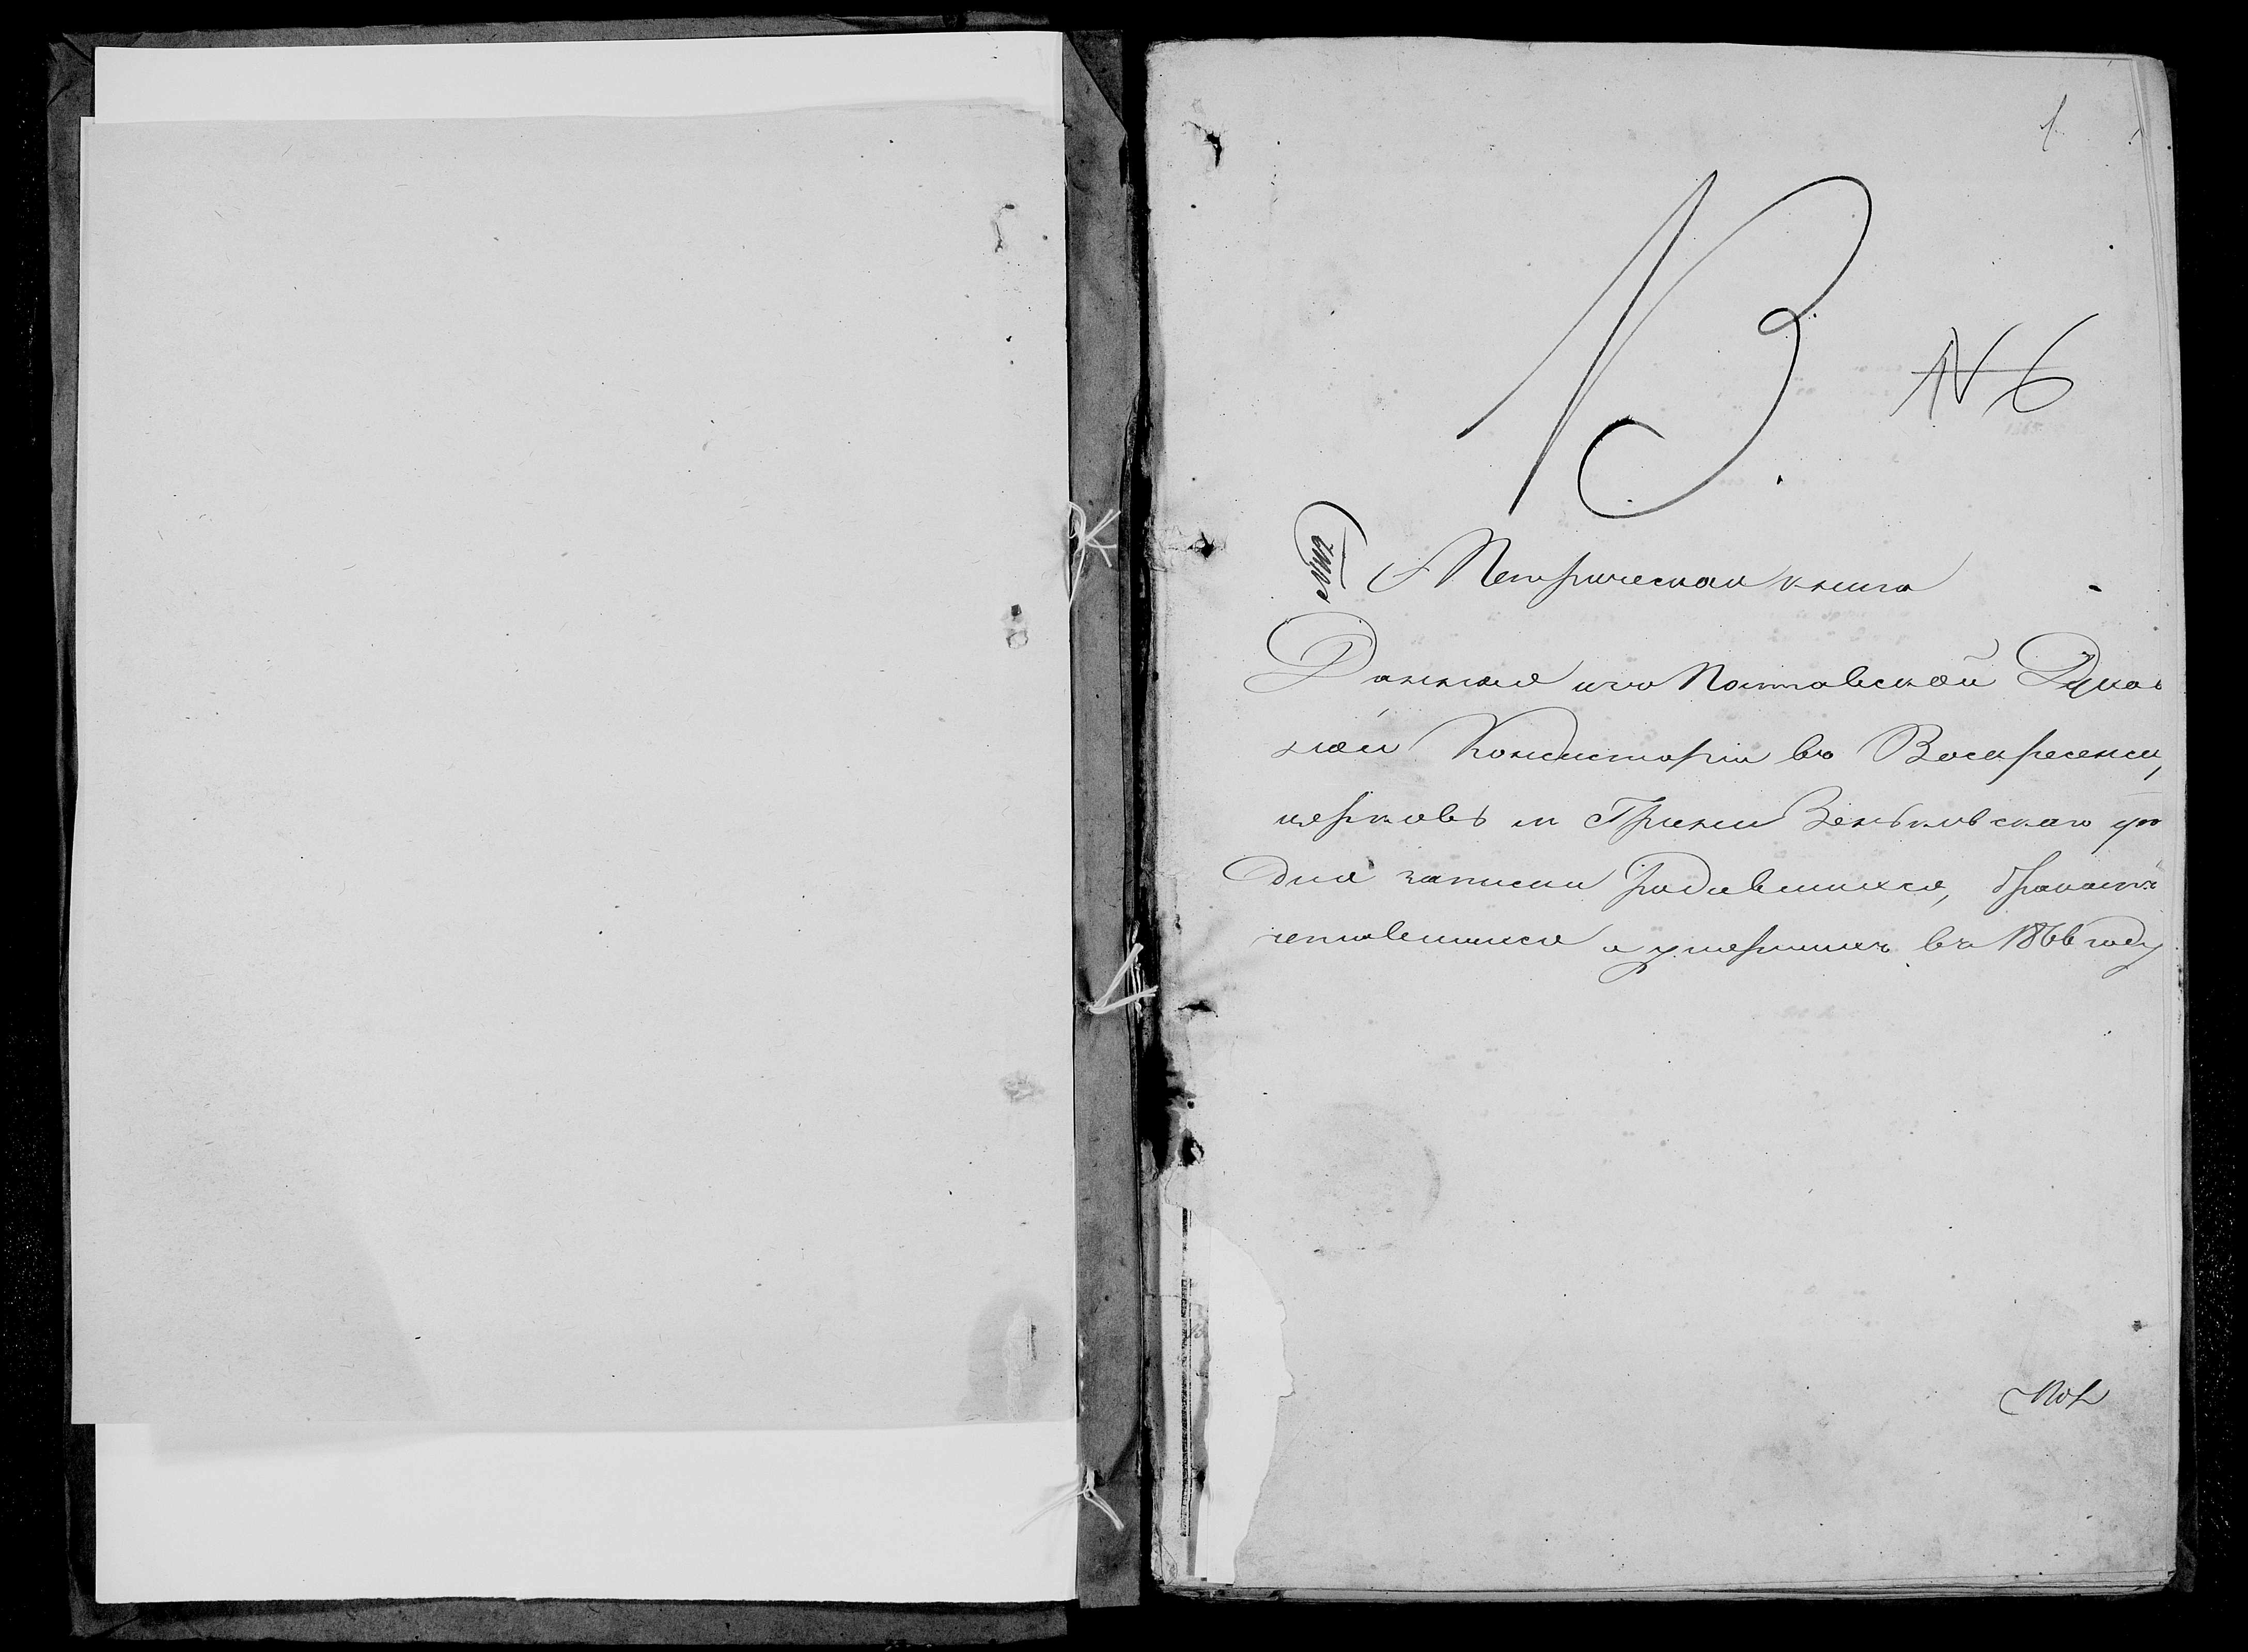 1
13
N 6
Метрическая книга
Данная изъ Полтавской Духов
ной Консисторіи въ Воскресенск,
церковь м Груни Зеньковскаго уѣз
для записки родившихся, бракомъ
сочетавшихся и умершихъ въ 1866 году